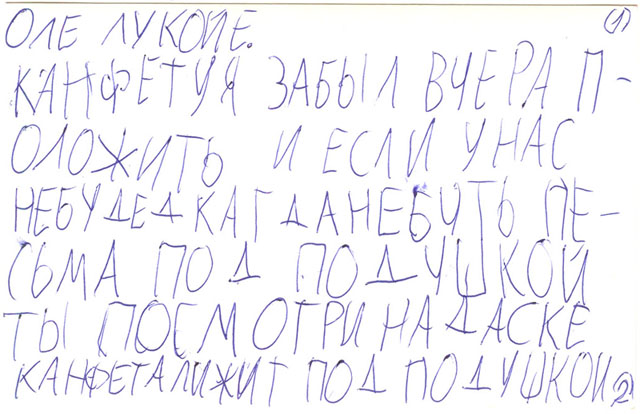 ОЛЕ ЛУКОЙЕ. (1)
КАНФЕТУЯ ЗАБЫЛ ВЧЕРА П-
ОЛОЖИТЬ И ЕСЛИ У НАС
НЕБУДЕД КАГДАНЕБУТЬ ПЕ-
СЬМА ПОД ПОДУШКОЙ
ТЫ ПОСМОТРИ НА ДАСКЕ
КАНФЕТА ЛИЖИТ ПОД ПОДУШКОЙ 2